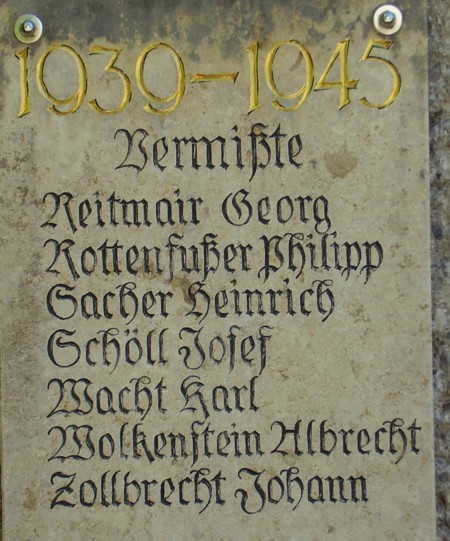 1939-1945
Vermißte
Reitmair Georg
Rottenfußer Philipp
Sacher Heinrich
Schöll Josef
Wacht Karl
Wolkenstein Albrecht
Zollbrecht Johann